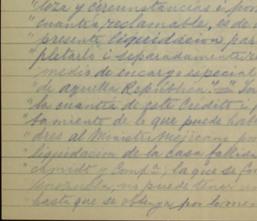 " leza y circunstancias i por
" cuantia reclamable, es de
" presente liquidacion par
" pletarlo i separadamente
" medio de encargo especial
" de aquella República." "
" la cuantia de este Credito i
" tamiento de lo que puede hab
" dres al Ministro Mejicano par
" liquidacion de la casa fallida
" Schmidt y Comp.ª, la que se
" Venezuela, no puede tener
" hasta que se obtenga por lo me